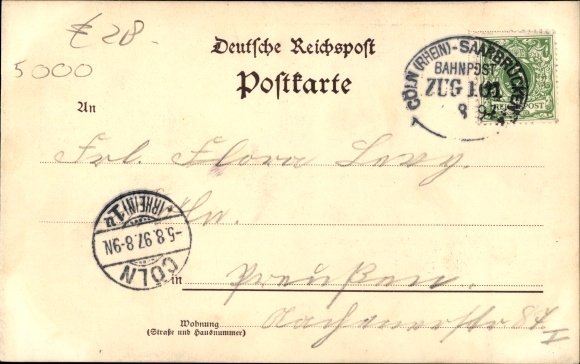 € 28.-
5000
Deutsche Reichspost
Postkarte
CÖLN (RHEIN)-SAARBRÜCKEN
BAHNPOST
ZUG 101
8 97
REICHSPOST
An
Frl. Flora Levy.
Cöln.
CÖLN
-5.8.97.8-9N
*(RHEIN)1
in Preußen.
Wohnung
(Straße und Hausnummer)
Aachenerstr 87. I